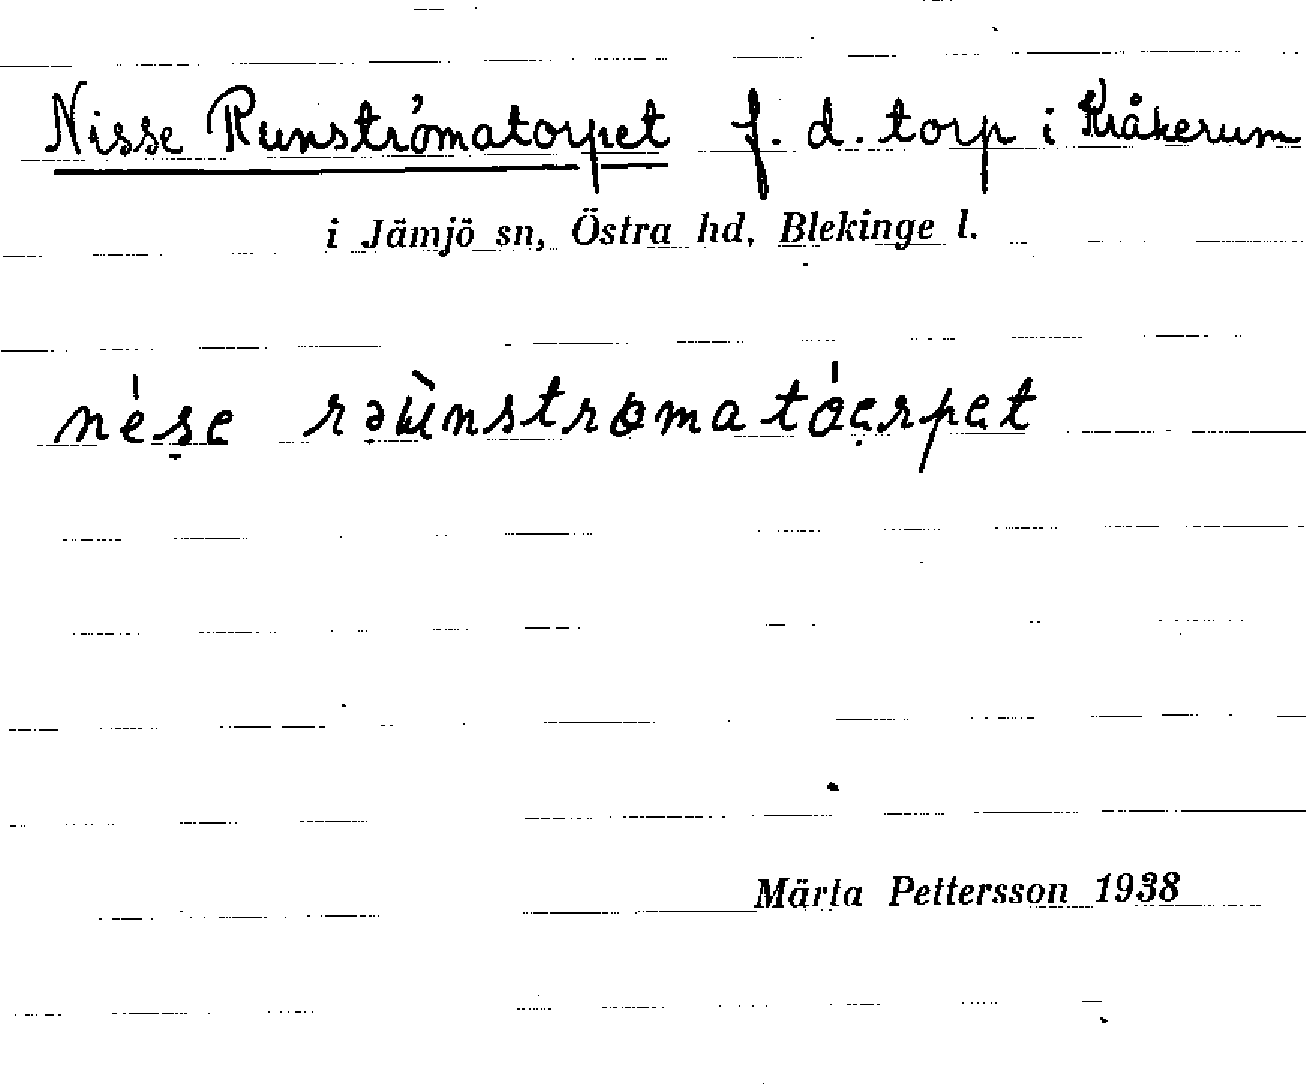 Nisse Runströmatorpet f. d. torp i Kråkerum
i Jämjö sn, Östra hd, Blekinge l.
nése rəùnstrɵmatóərpət
Märta Pettersson 1938